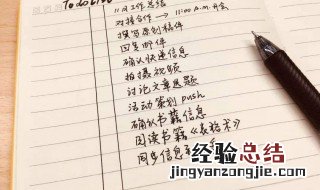 To do List
11月工作总结
对接合作 → 11:00 a.m. 开会
撰写原创稿件
回复邮件
确认快递信息
拍摄视频
讨论文章选题
活动策划push
确认书籍信息
阅读书籍《表格术》
同步信息
经验总结
www.jingyanzongjie.com